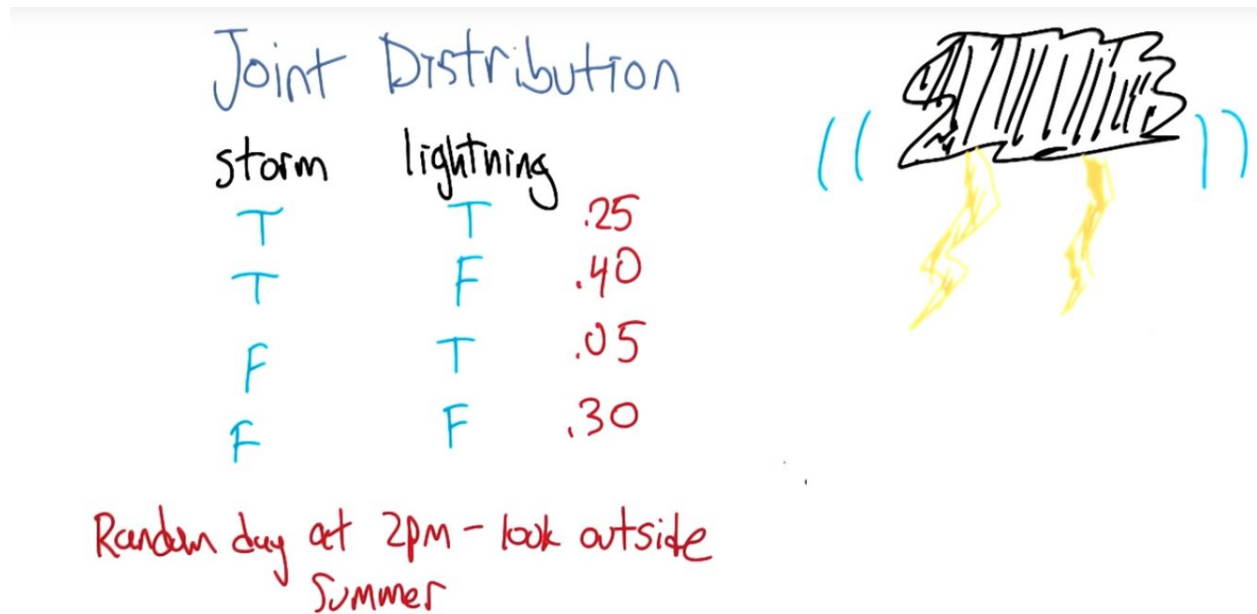 Joint Distribution
storm lightning
T T .25
T F .40
F T .05
F F .30
Random day at 2pm - look outside
Summer